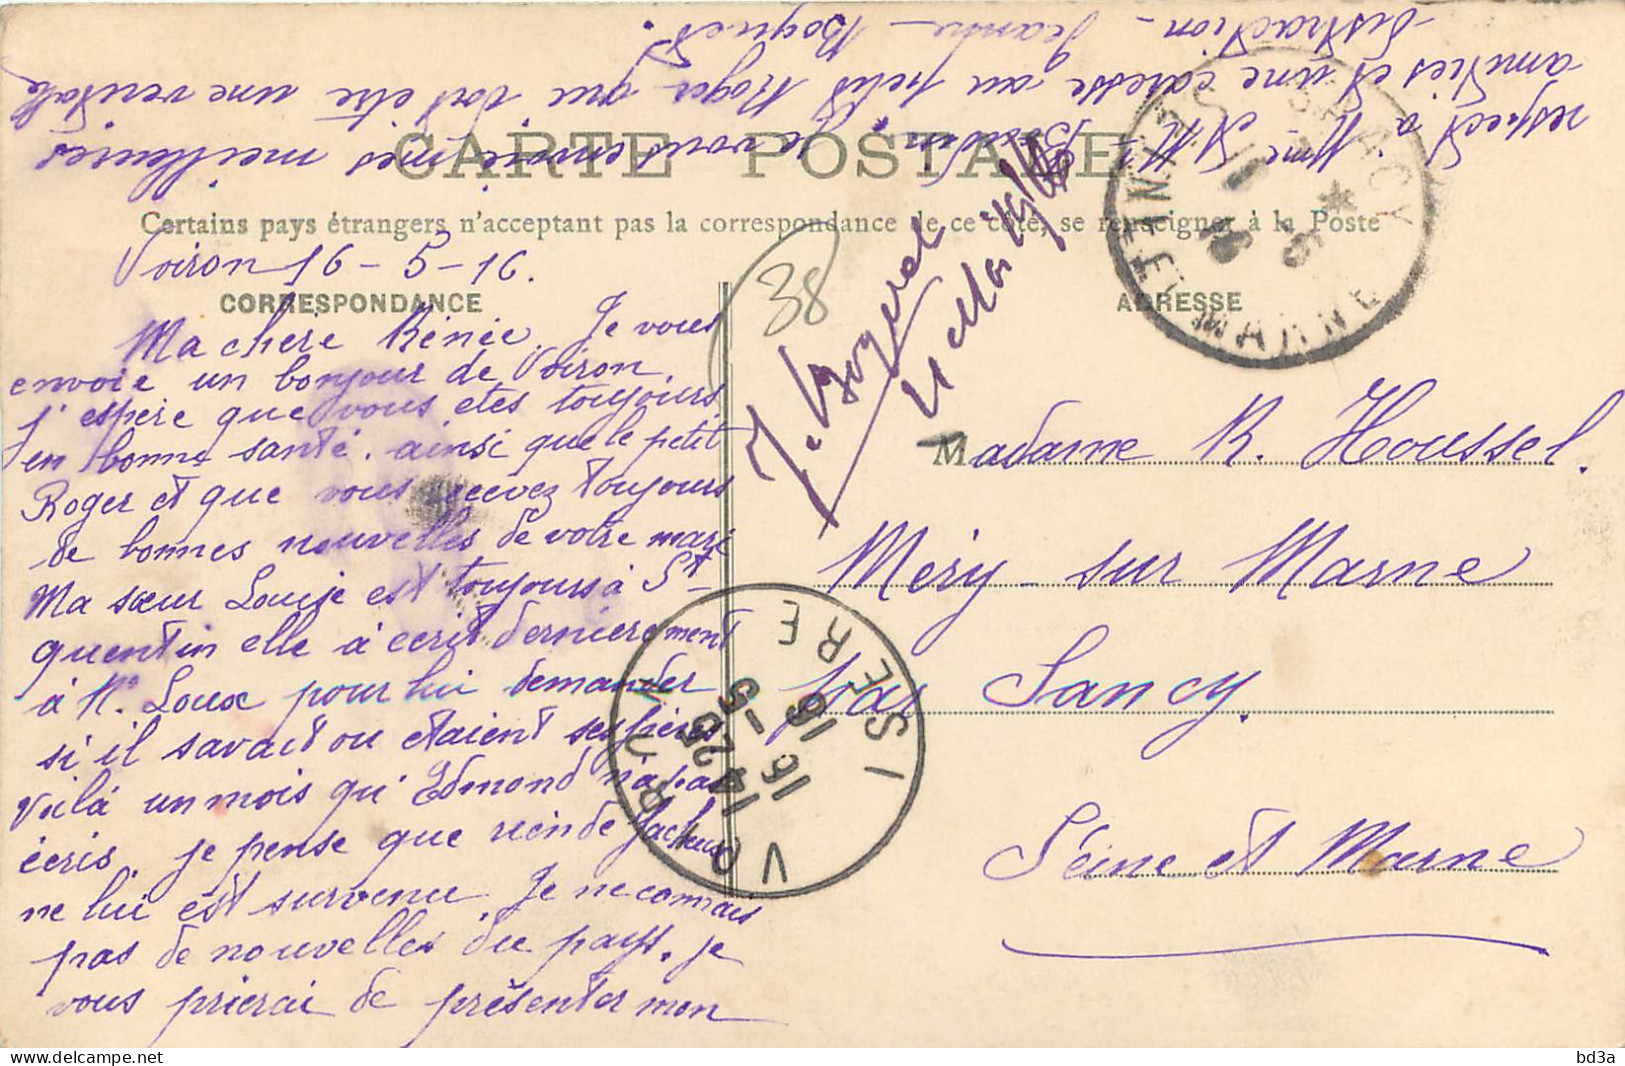 CARTE POSTALE
Certains pays étrangers n'acceptant pas la correspondance de ce côté, se renseigner à la Poste
Voiron 16-5-16.
CORRESPONDANCE
Ma chère Rénée. Je vous
envoie un bonjour de Voiron.
j'espére que vous etes toujours
en bonne santé. ainsi que le petit
Roger et que vous recevez toujours
de bonnes nouvelles de votre mari
Ma sœur Louise est toujours à St-
quentin elle à ecrit dernierement
à Mr. Loux pour lui demander
si il savait ou etaient ses frères
Voilà un mois qu'Edmond n'a pas
écris. je pense que rein de facheux
ne lui est survenu Je ne connais
pas de nouvelles du pays. je
vous prierai de présenter mon
respect à Mme et Mr Boudin Je vous envoie mes meilleures
amitiés et une caresse au petit Roger qui doit etre une veritable
distraction - Jeanne Boquet.
38
ADRESSE
Madame R. Houssel.
Méry-sur Marne
par Sancy.
Seine et Marne
SAACY
SEINE-ET-MARNE
16 -5
16
VOIRON
ISERE
14 25
16 -5
16
bd3a